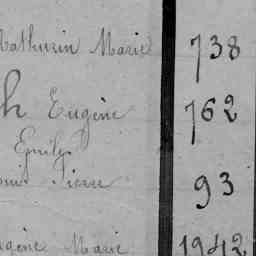 Mathurin Marie 738
h Eugène 762
Emile
Pierre 93
Marie 1942